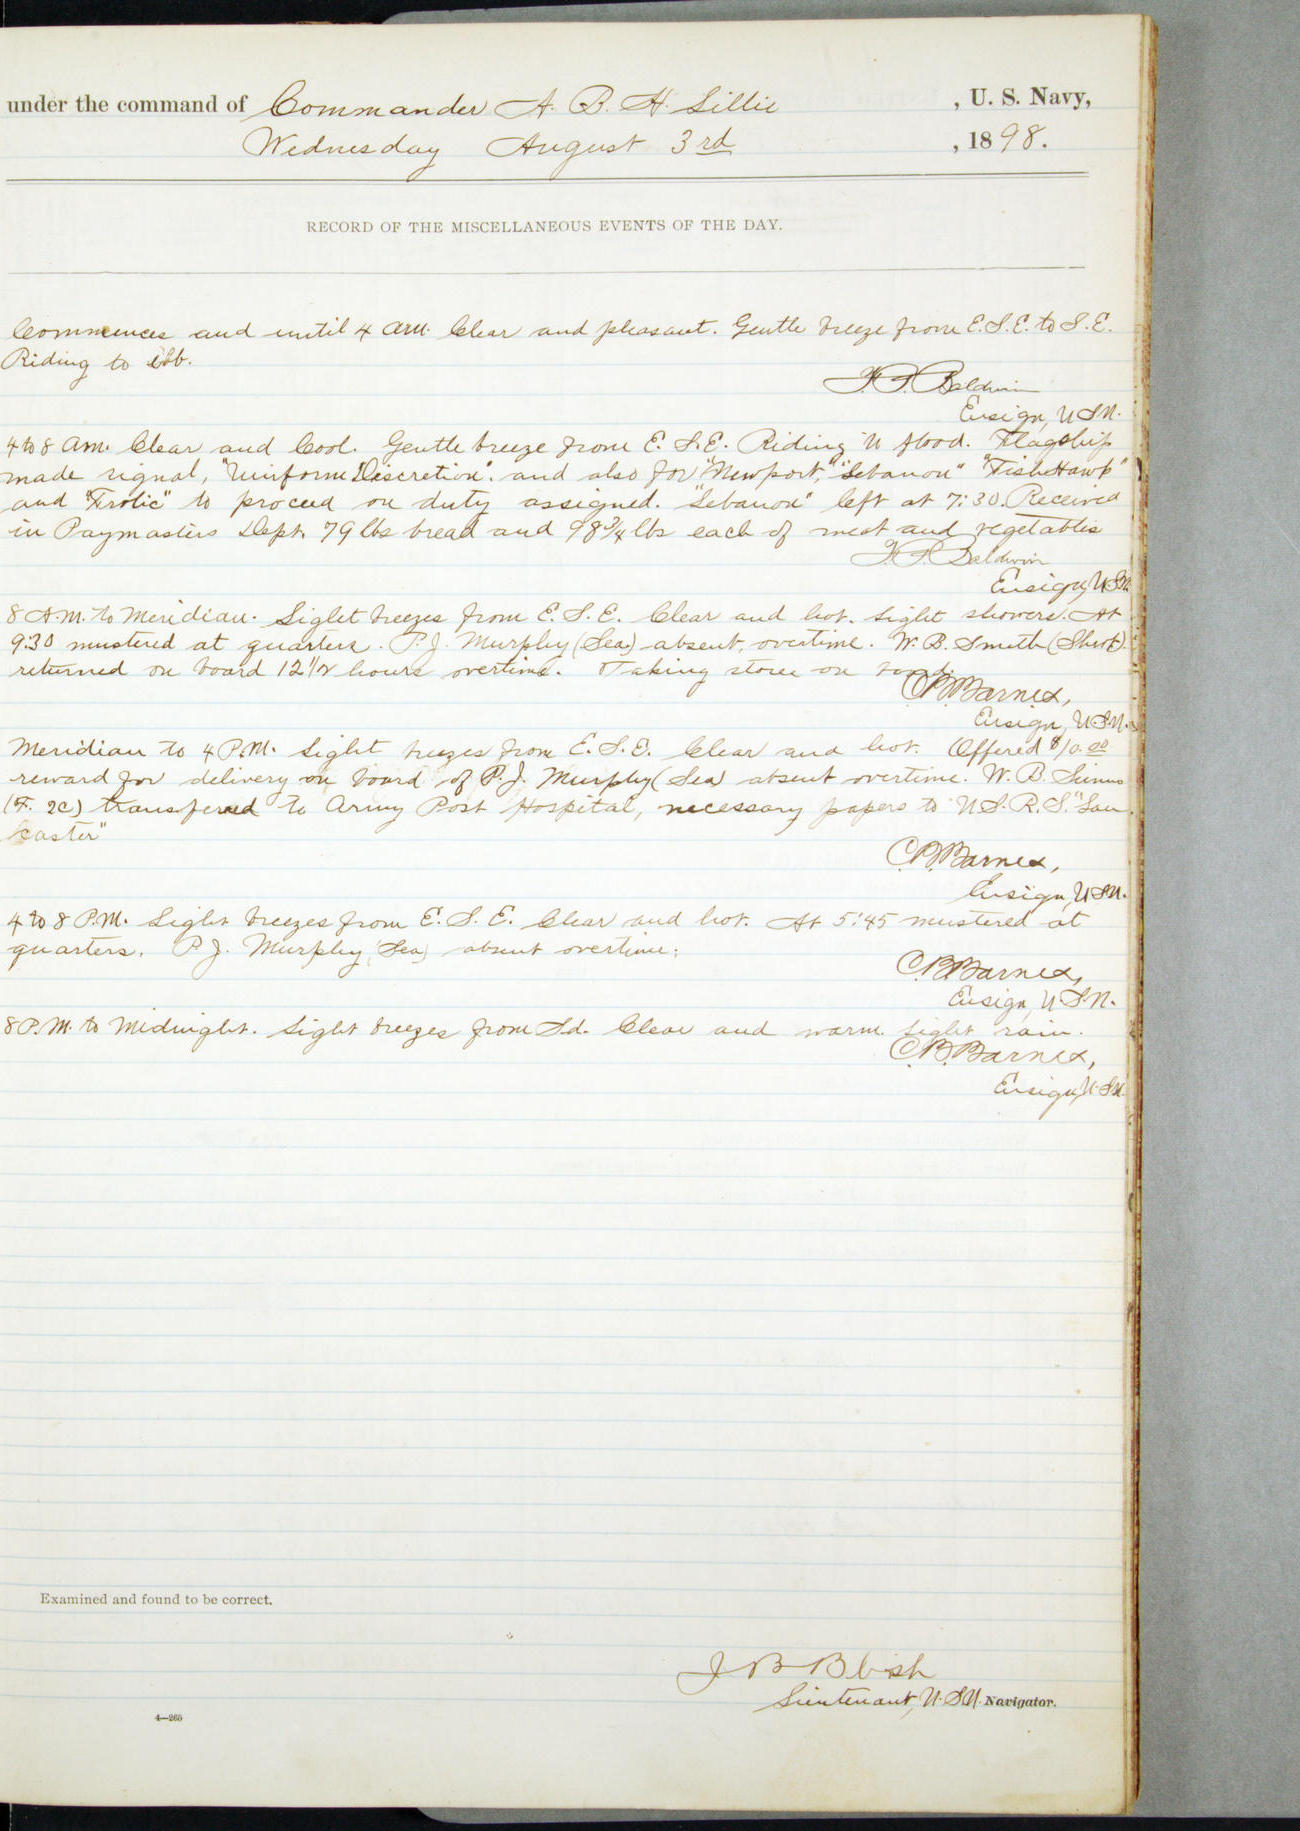 under the command of Commander A. B. H. Lillie , U. S. Navy,
Wednesday August 3rd , 1898.
RECORD OF THE MISCELLANEOUS EVENTS OF THE DAY.
Commences and until 4 am. Clear and pleasant. Gentle breeze from E.S.E. to S.E.
Riding to ebb.
F. P. Baldwin
Ensign, U.S.N.
4 to 8 am. Clear and Cool. Gentle breeze from E. S. E. Riding to flood. Flagship
made signal, "Uniform Discretion". and also for "Newport," "Lebanon" "Fish Hawk"
and "Frolic" to proceed on duty assigned. "Lebanon" left at 7:30. Received
in Paymasters Dept. 79 lbs bread and 98 3/4 lbs each of meat and vegetables
F. P. Baldwin
Ensign, U.S.N.
8 A.M. to Meridian. Light breezes from E. S. E. Clear and hot. Light showers. At
9:30 mustered at quarters. P. J. Murphy (Sea) absent, overtime. W. B. Smith (Shwt).
returned on board 12 1/2 hours overtime. Taking stores on board.
C. B. Barnes,
Ensign, U.S.N.
Meridian to 4 P.M. Light breezes from E. S. E. Clear and hot. Offered $10.00
reward for delivery on board of P. J. Murphy (Sea) absent overtime. W. B.
(F. 2c) transfered to Army Post Hospital, necessary papers to U.S.R.S. "Lan
caster"
C. B. Barnes,
Ensign, U.S.N.
4 to 8 P.M. Light breezes from E. S. E. Clear and hot. At 5:45 mustered at
quarters. P. J. Murphy (Sea) absent overtime.
C. B. Barnes,
Ensign, U.S.N.
8 P.M. to Midnight. Light breezes from Sd. Clear and warm. Light rain.
C. B. Barnes,
Ensign, U.S.N.
Examined and found to be correct.
J B Blish
Lieutenant, U.S.N. Navigator.
4—265